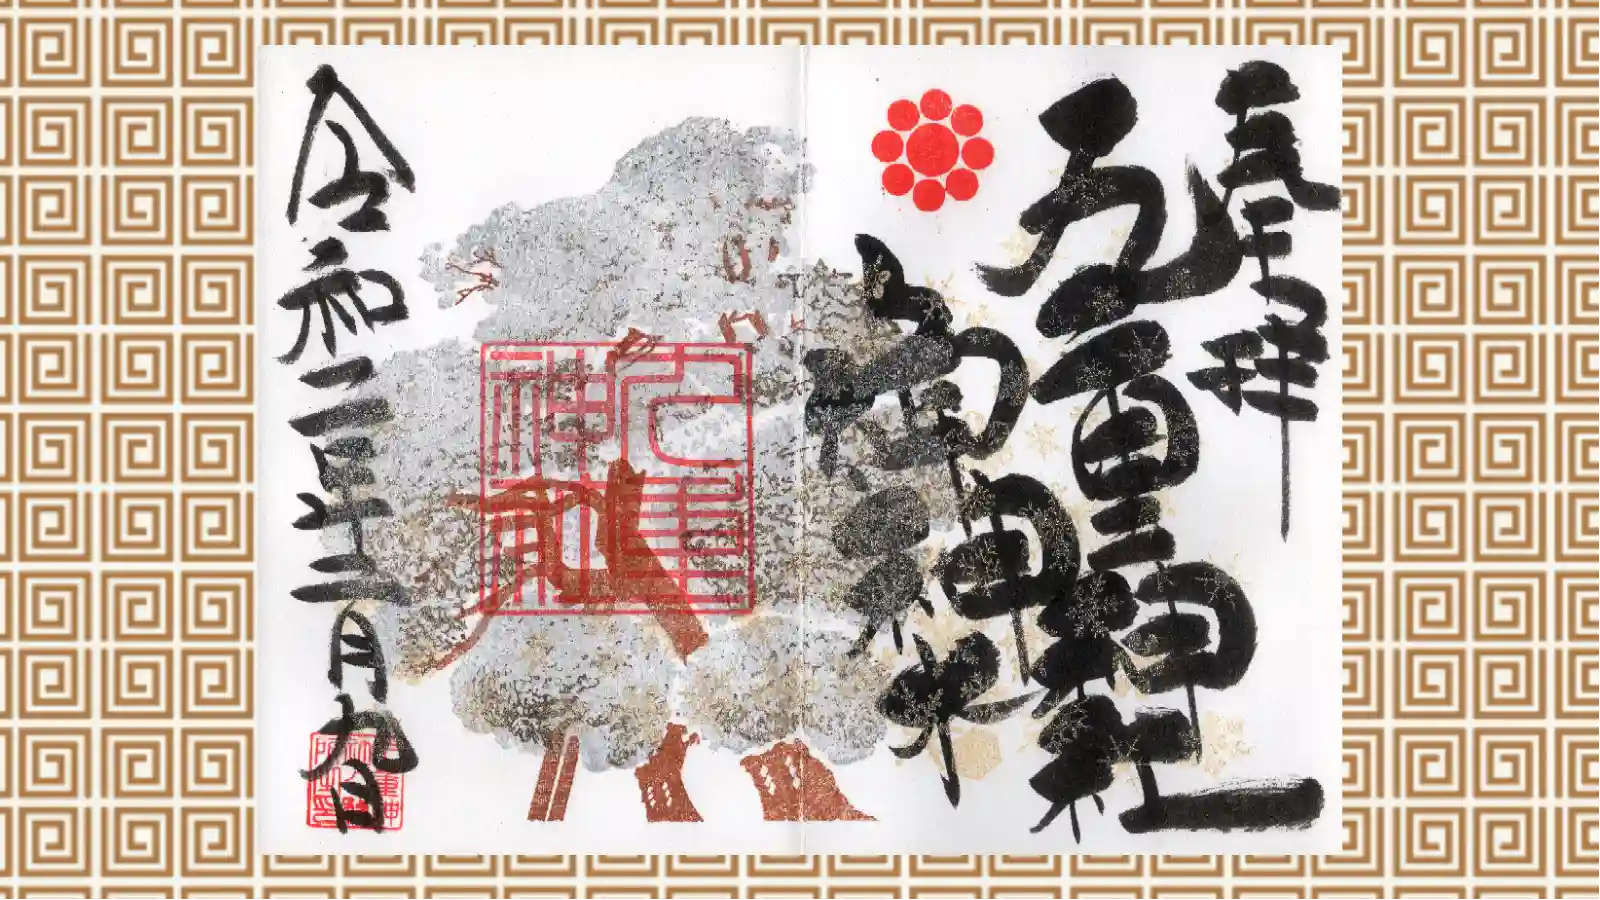 奉拝
九重神社
御神木
九重神社
令和二年二月九日